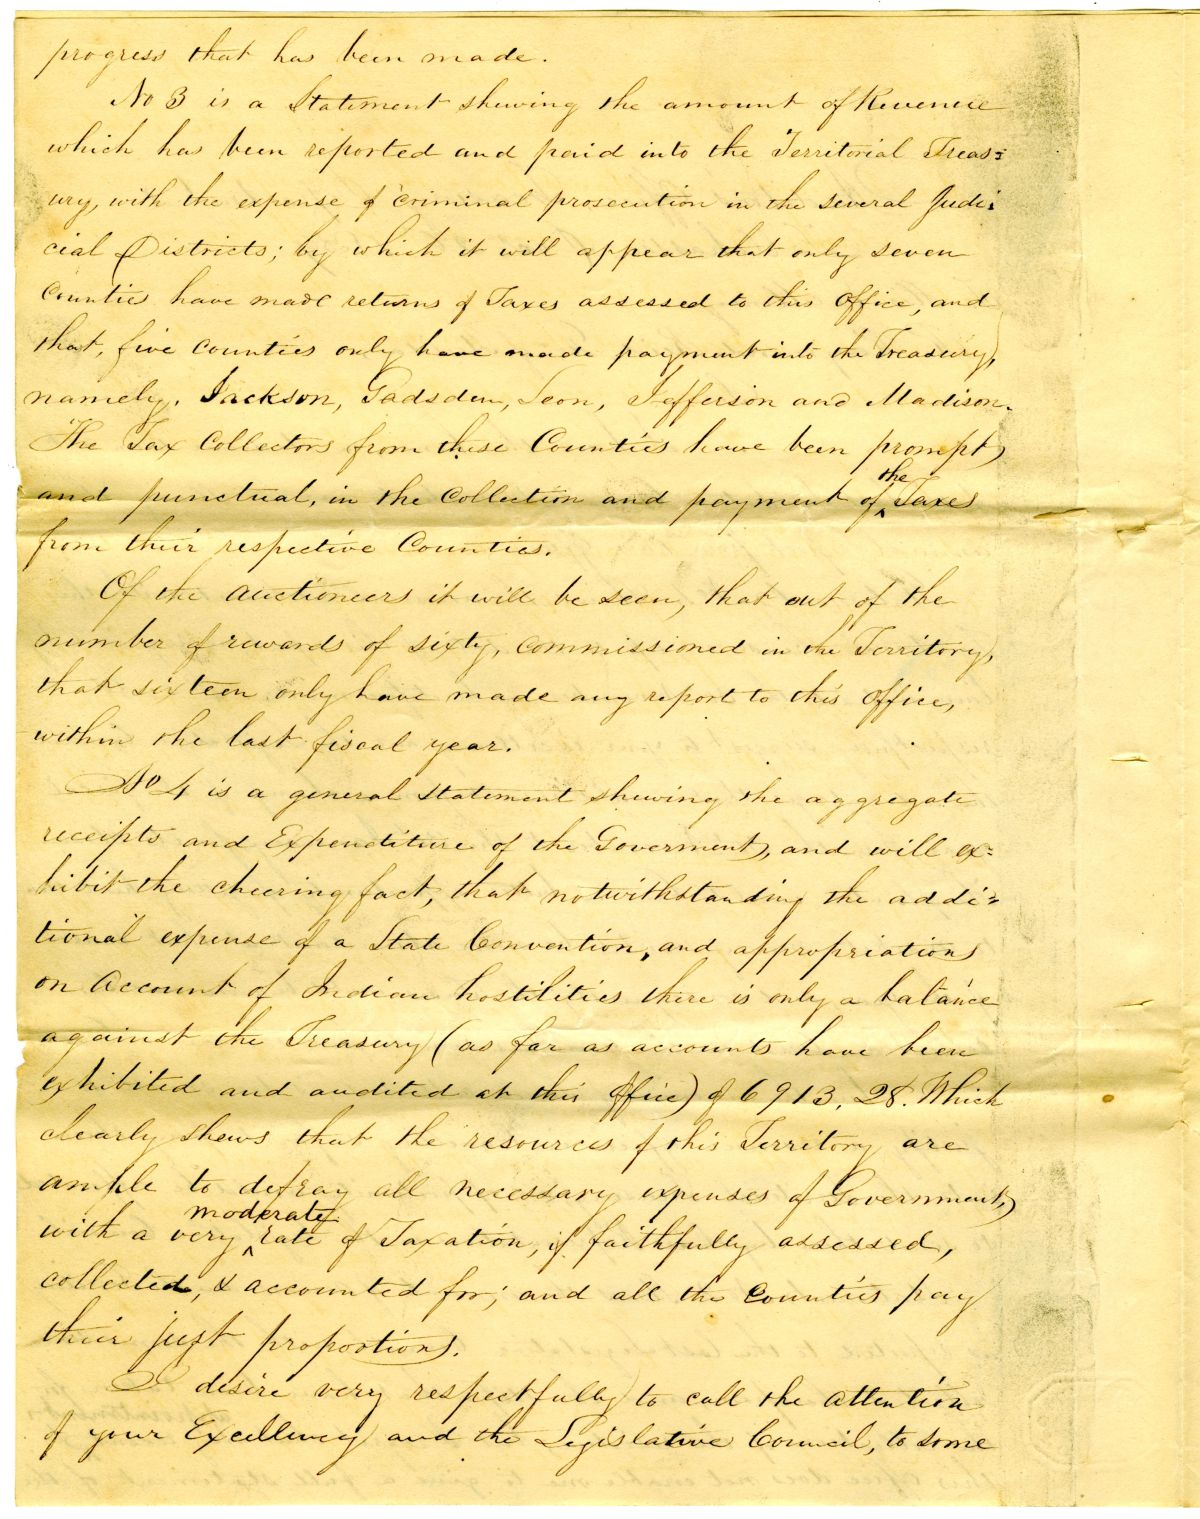 progress that has been made.
No 3 is a Statement shewing the amount of Revenue
which has been reported and paid into the Territorial Treas=
ury, with the expense of criminal prosecution in the several Judi=
cial Districts; by which it will appear that only seven
Counties have made returns of Taxes assessed to this Office, and
that, five Counties only have made payment into the Treasury,
namely, Jackson, Gadsden, Leon, Jefferson and Madison.
The Tax Collectors from these Counties have been prompt
and punctual, in the Collection and payment of the Taxes
from their respective Counties.
Of the Auctioneers it will be seen, that out of the
number of rewards of sixty, commissioned in the Territory,
that sixteen only have made any report to this Office,
within the last fiscal year.
No 4 is a general statement shewing the aggregate
receipts and Expenditure of the Goverment, and will ex=
hibit the cheering fact, that notwithstanding the addi=
tional expense of a State Convention, and appropriations
on Account of Indian hostilities there is only a balance
against the Treasury (as far as accounts have been
exhibited and audited at this Office) of 6913.28. Which
clearly shews that the resources of this Territory are
ample to defray all necessary expenses of Government,
with a very moderate rate of Taxation, if faithfully assessed,
collected, & accounted for; and all the Counties pay
their just proportions.
I desire very respectfully to call the attention
of your Excellency and the Legislative Council, to some